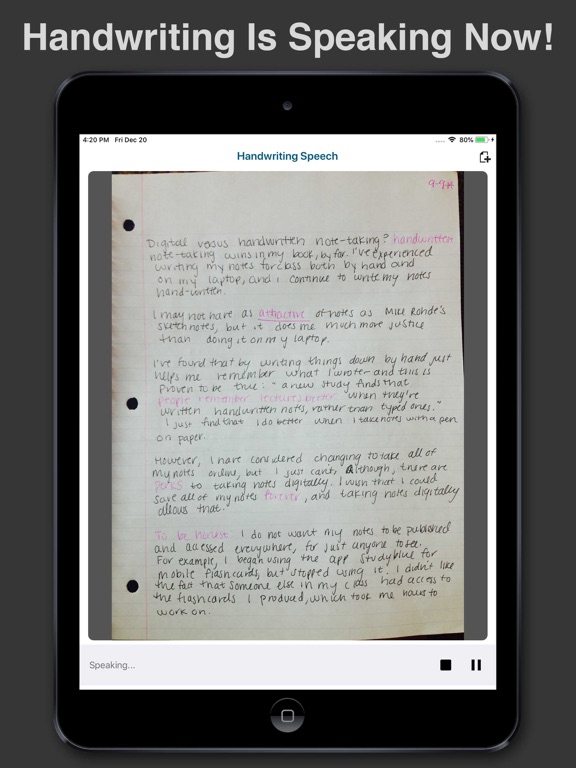 Handwriting Is Speaking Now!
4:20 PM Fri Dec 20
80%
Handwriting Speech
9-9-14
Digital versus handwritten note-taking? handwritten
note-taking wins in my book, by far. I've experienced
writing my notes for class both by hand and
on my laptop, and i continue to write my notes
hand-written.
I may not have as attractive of notes as Mike Rohde's
sketchnotes, but it does me much more justice
than doing it on my laptop.
I've found that by writing things down by hand just
helps me remember what I wrote- and this is
proven to be true: "a new study finds that
people remember lectures better when they're
written handwritten notes, rather than typed ones."
I just find that I do better when I take notes with a pen
on paper.
However, I have considered changing to take all of
my notes online, but I just can't. Although, there are
perks to taking notes digitally. I wish that I could
save all of my notes forever, and taking notes digitally
allows that.
To be honest I do not want my notes to be published
and accessed everywhere, for just anyone to see.
For example, I began using the app studyblue for
mobile flashcards, but stopped using it. I didn't like
the fact that someone else in my class had access to
the flashcards I produced, which took me hours to
work on.
Speaking...